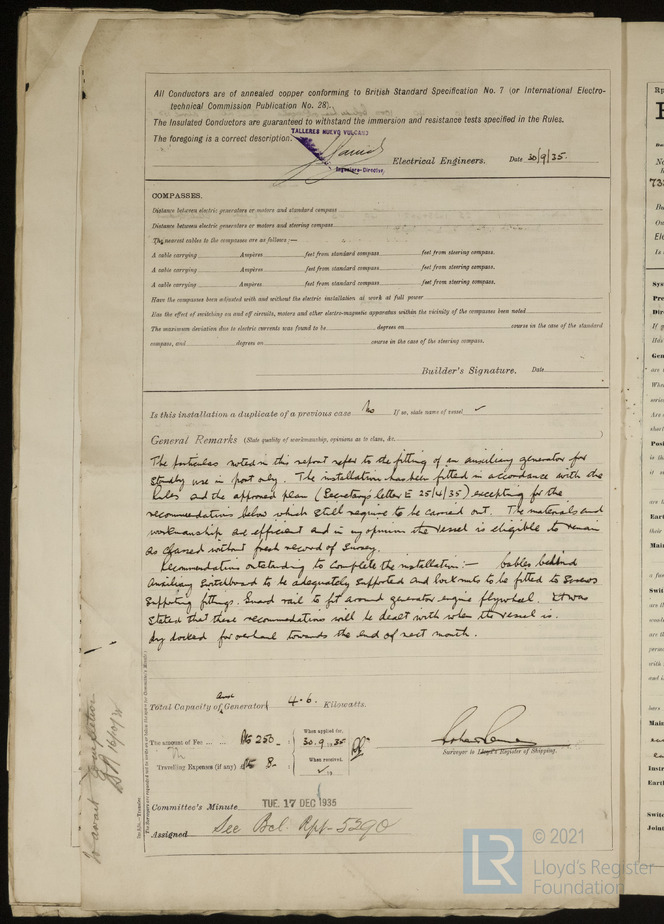 All Conductors are of annealed copper conforming to British Standard Specification No. 7 (or International Electro-
technical Commission Publication No. 28).
The Insulated Conductors are guaranteed to withstand the immersion and resistance tests specified in the Rules.
The foregoing is a correct description.
TALLERES NUEVO VULCANO
Ingeniero-Director,
Electrical Engineers. Date 30/9/35.
COMPASSES.
Distance between electric generators or motors and standard compass
Distance between electric generators or motors and steering compass
The nearest cables to the compasses are as follows:—
A cable carrying Ampères feet from standard compass feet from steering compass.
A cable carrying Ampères feet from standard compass feet from steering compass.
A cable carrying Ampères feet from standard compass feet from steering compass.
Have the compasses been adjusted with and without the electric installation at work at full power
Has the effect of switching on and off circuits, motors and other electro-magnetic apparatus within the vicinity of the compasses been noted
The maximum deviation due to electric currents was found to be degrees on course in the case of the standard
compass, and degrees on course in the case of the steering compass.
Builder's Signature. Date
Is this installation a duplicate of a previous case No If so, state name of vessel ✓
General Remarks (State quality of workmanship, opinions as to class, &c.
The particulars noted in this report refer to the fitting of an auxiliary generator for
standby use in port only. The installation has been fitted in accordance with the
Rules and the approved plan (Secretary's letter E 25/4/35) excepting for the
recommendations below which still require to be carried out. The materials and
workmanship are efficient and in my opinion the vessel is eligible to remain
as classed without fresh record of Survey.
Recommendations outstanding to complete the installation:— Cables behind
Auxiliary Switchboard to be adequately supported and lock nuts to be fitted to screws
supporting fittings. Guard rail to fit around generator engine flywheel. It was
stated that these recommendations will be dealt with when the vessel is
dry docked for overhaul towards the end of next month.
Total Capacity of Generator 4.6. Kilowatts.
The amount of Fee 250
When applied for,
30.9.1935
Travelling Expenses (if any) 8
When received,
✓ 19
Surveyor to Lloyd's Register of Shipping.
Committee's Minute TUE. 17 DEC 1935
Assigned See Bcl. Rpt 5390
© 2021
Lloyd's Register
Foundation
LR